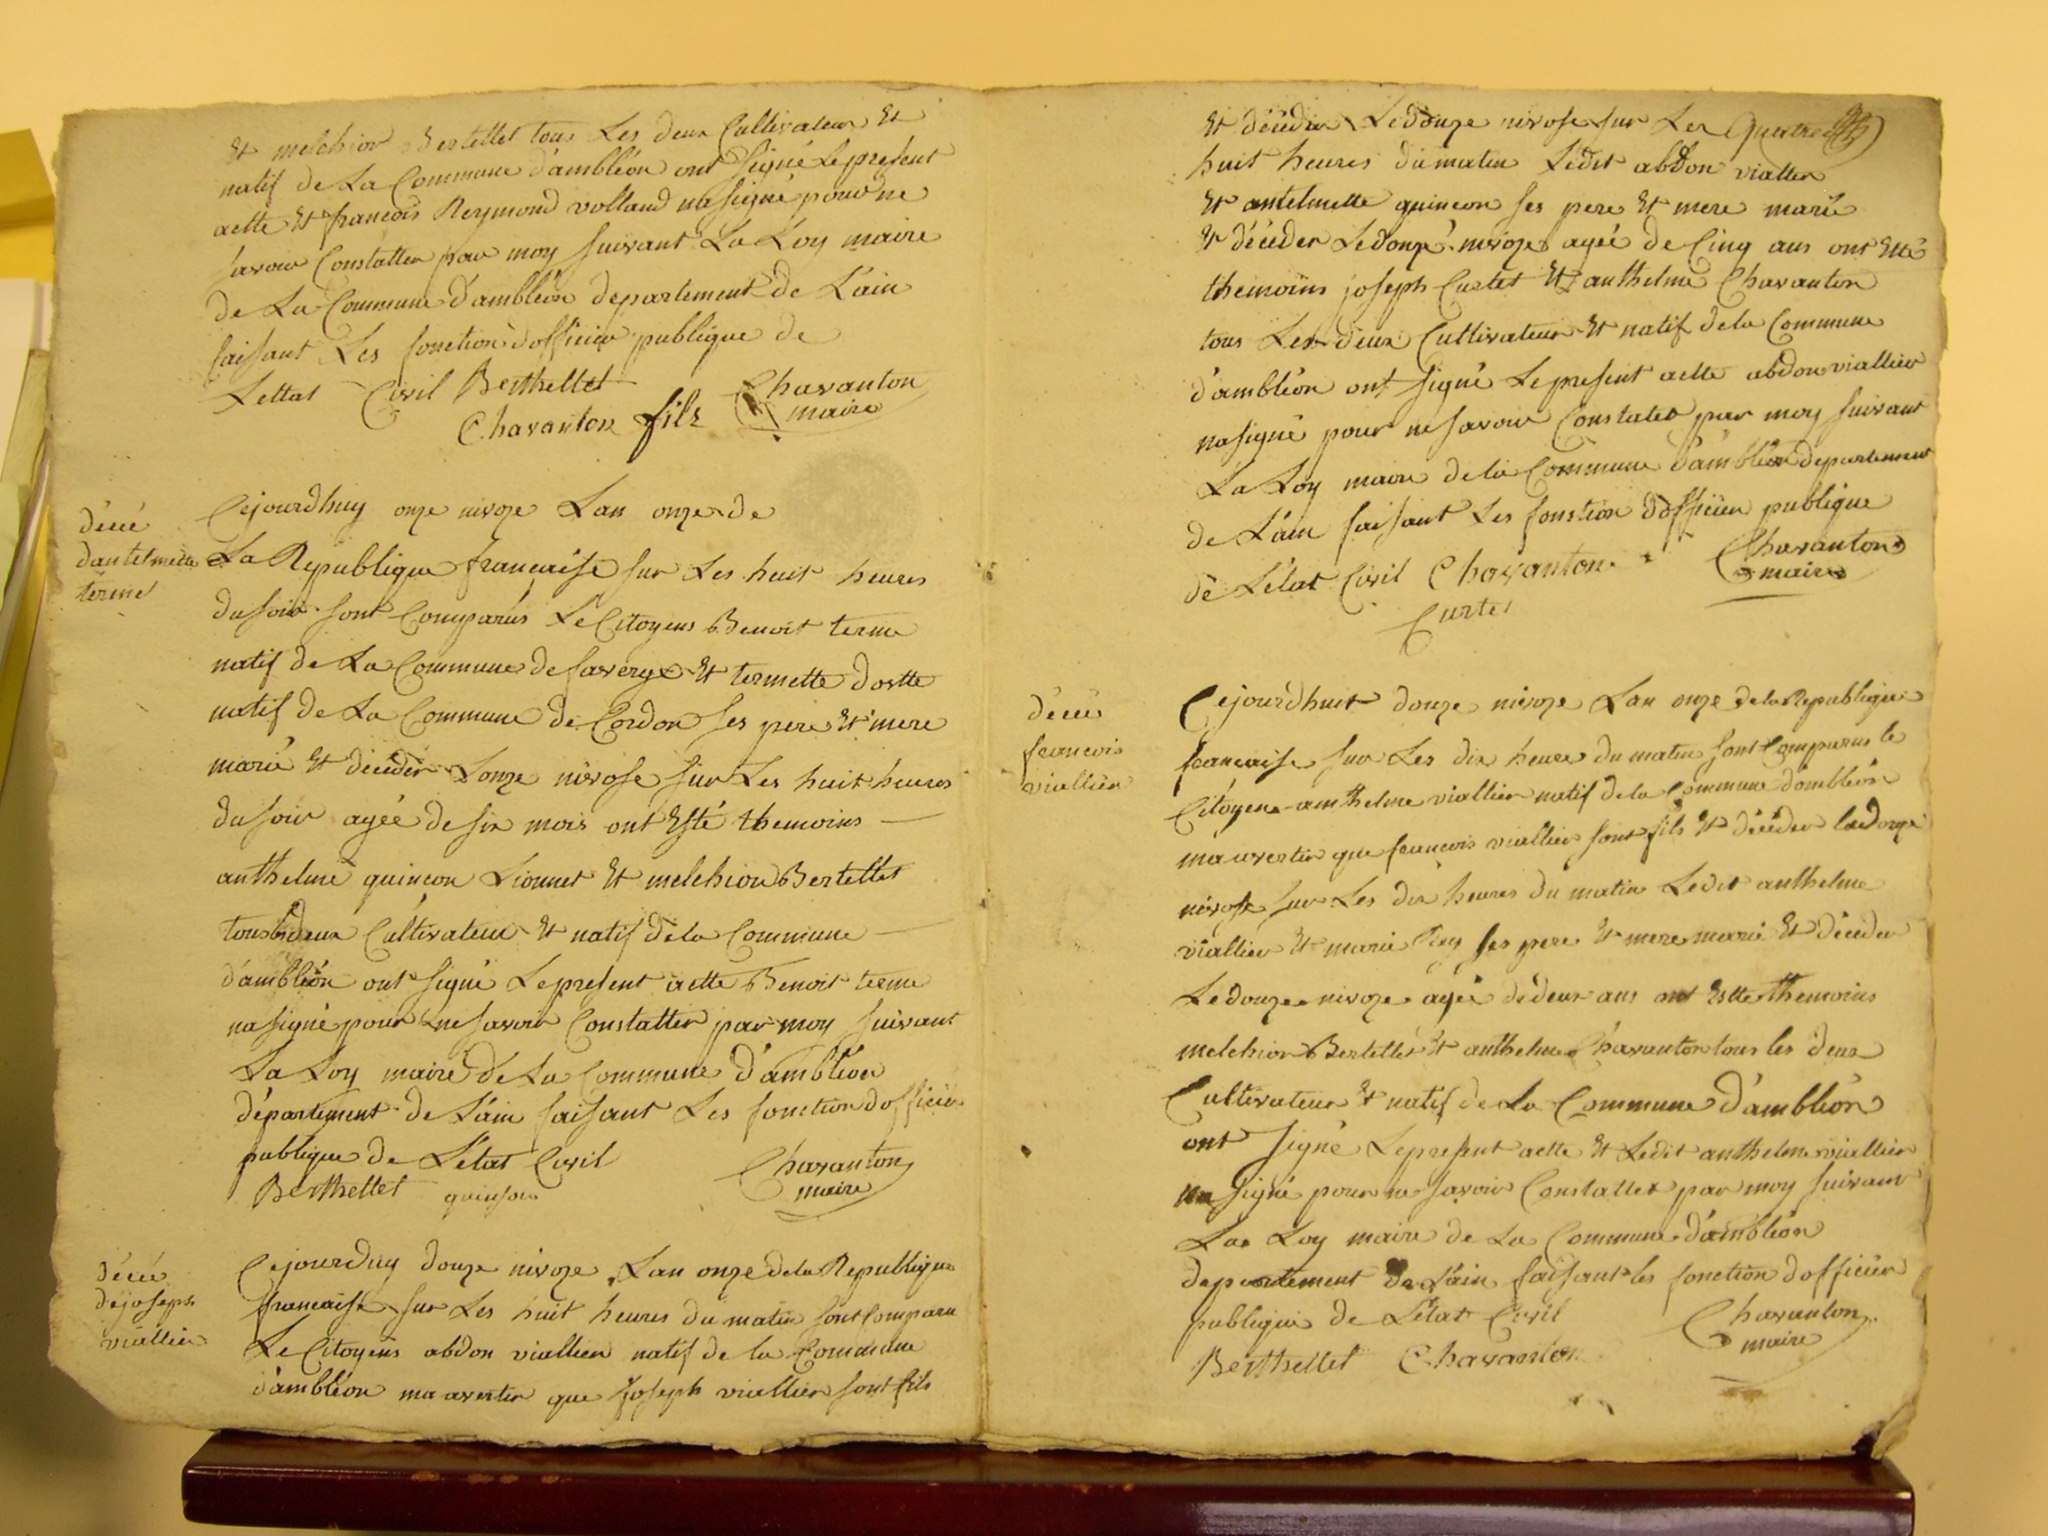 Et melchior Bertellet tous Les deux Cultivateur Et
natif de La Commune d'ambléon ont signé Le present
actte Et francois Reymond volland na signé pour ne
savoir Constatter par moy suivant La Loy maire
de La Commune d'ambléon departement de L'ain
faisant Les fonction d'officier publique de
Lettat Civil Berthellet Chavanton
Chavanton fils maire
décé
dantelmette
terme
Cejourdhuy onze nivoze Lan onze de
La Republique francaise sur Les huit heures
du soir sont Comparus Le Citoyens Benoit terme
natif de La Commune de faverge Et termette dostte
natif de La Commune de Cordon ses pere Et mere
marié Et décédér Lonze nivose sur Les huit heures
du soir agéé de six mois ont Esté themoins
anthelme quincon Lionnet Et melchior Bertellet
tous deux Cultivateur Et natif de la Commune
d'ambléon ont signé Le present actte Benoit terme
na signé pour ne savoir Constatter par moy suivant
La Loy maire de La Commune d'ambléon
département de L'ain faisant Les fonction dofficier
publique de L'état Civil Chavanton
Berthellet quinson maire
décéé
de joseph
viallier
Cejourduy douze nivoze Lan onze de la Republique
francaise sur Les huit heures du matin sont Comparu
Le Citoyens abdon viallier natif de la Commune
d'ambléon ma avertir que joseph viallier sont fils
Et décéder Le douze nivose sur Les Quatre
huit heures du matin Ledit abdon viallier
Et antelmette quincon ses pere Et mere marié
Et décéder Le douze nivoze agéé de Cinq ans ont Etté
themoins joseph Curtet Et anthelme Chavanton
tous Les deux Cultivateur Et natif de la Commune
d'ambléon ont signé Le present actte abdon viallier
na signé pour ne savoir Constater par moy suivant
La Loy maire de la Commune d'ambléon departement
de L'ain faisant Les fonction d'officier publique
de L'état Civil Chavanton Chavanton
Curtet maire
décéé
francois
viallier
Cejourdhuit douze nivoze Lan onze de la Republique
francaise sur Les dix heure du matin sont Comparus le
Citoyens anthelme viallier natif de la Commune d'ambléon
ma avertir que francois viallier sont fils Et décéder le douze
nivose sur Les dix heures du matin Ledit anthelme
viallier Et marie Rey ses pere Et mere marié Et décéder
Le douze nivoze agéé de deux ans ont Estte themoins
melchior Bertellet Et anthelme Chavanton tous les deux
Cultivateur Et natif de La Commune d'ambléon
ont signé Le present actte Et Ledit anthelme viallier
na signé pour ne savoir Constatter par moy suivant
La Loy maire de La Commune d'ambléon
departement de L'ain faisant les fonction dofficier
publique de L'état Civil Chavanton
Berthellet Chavanton maire